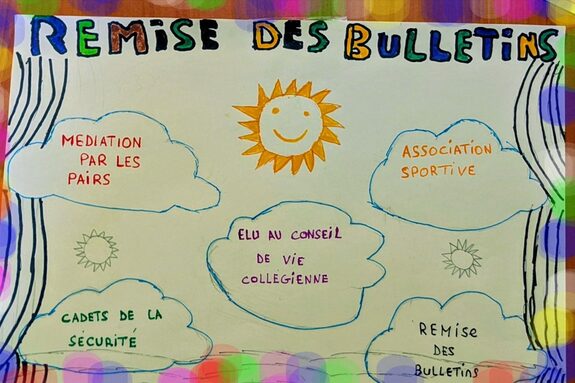 REMISE DES BULLETINS
MEDIATION
PAR LES
PAIRS
ASSOCIATION
SPORTIVE
ELU AU CONSEIL
DE VIE
COLLEGIENNE
CADETS DE LA
SÉCURITÉ
REMISE
DES
BULLETINS